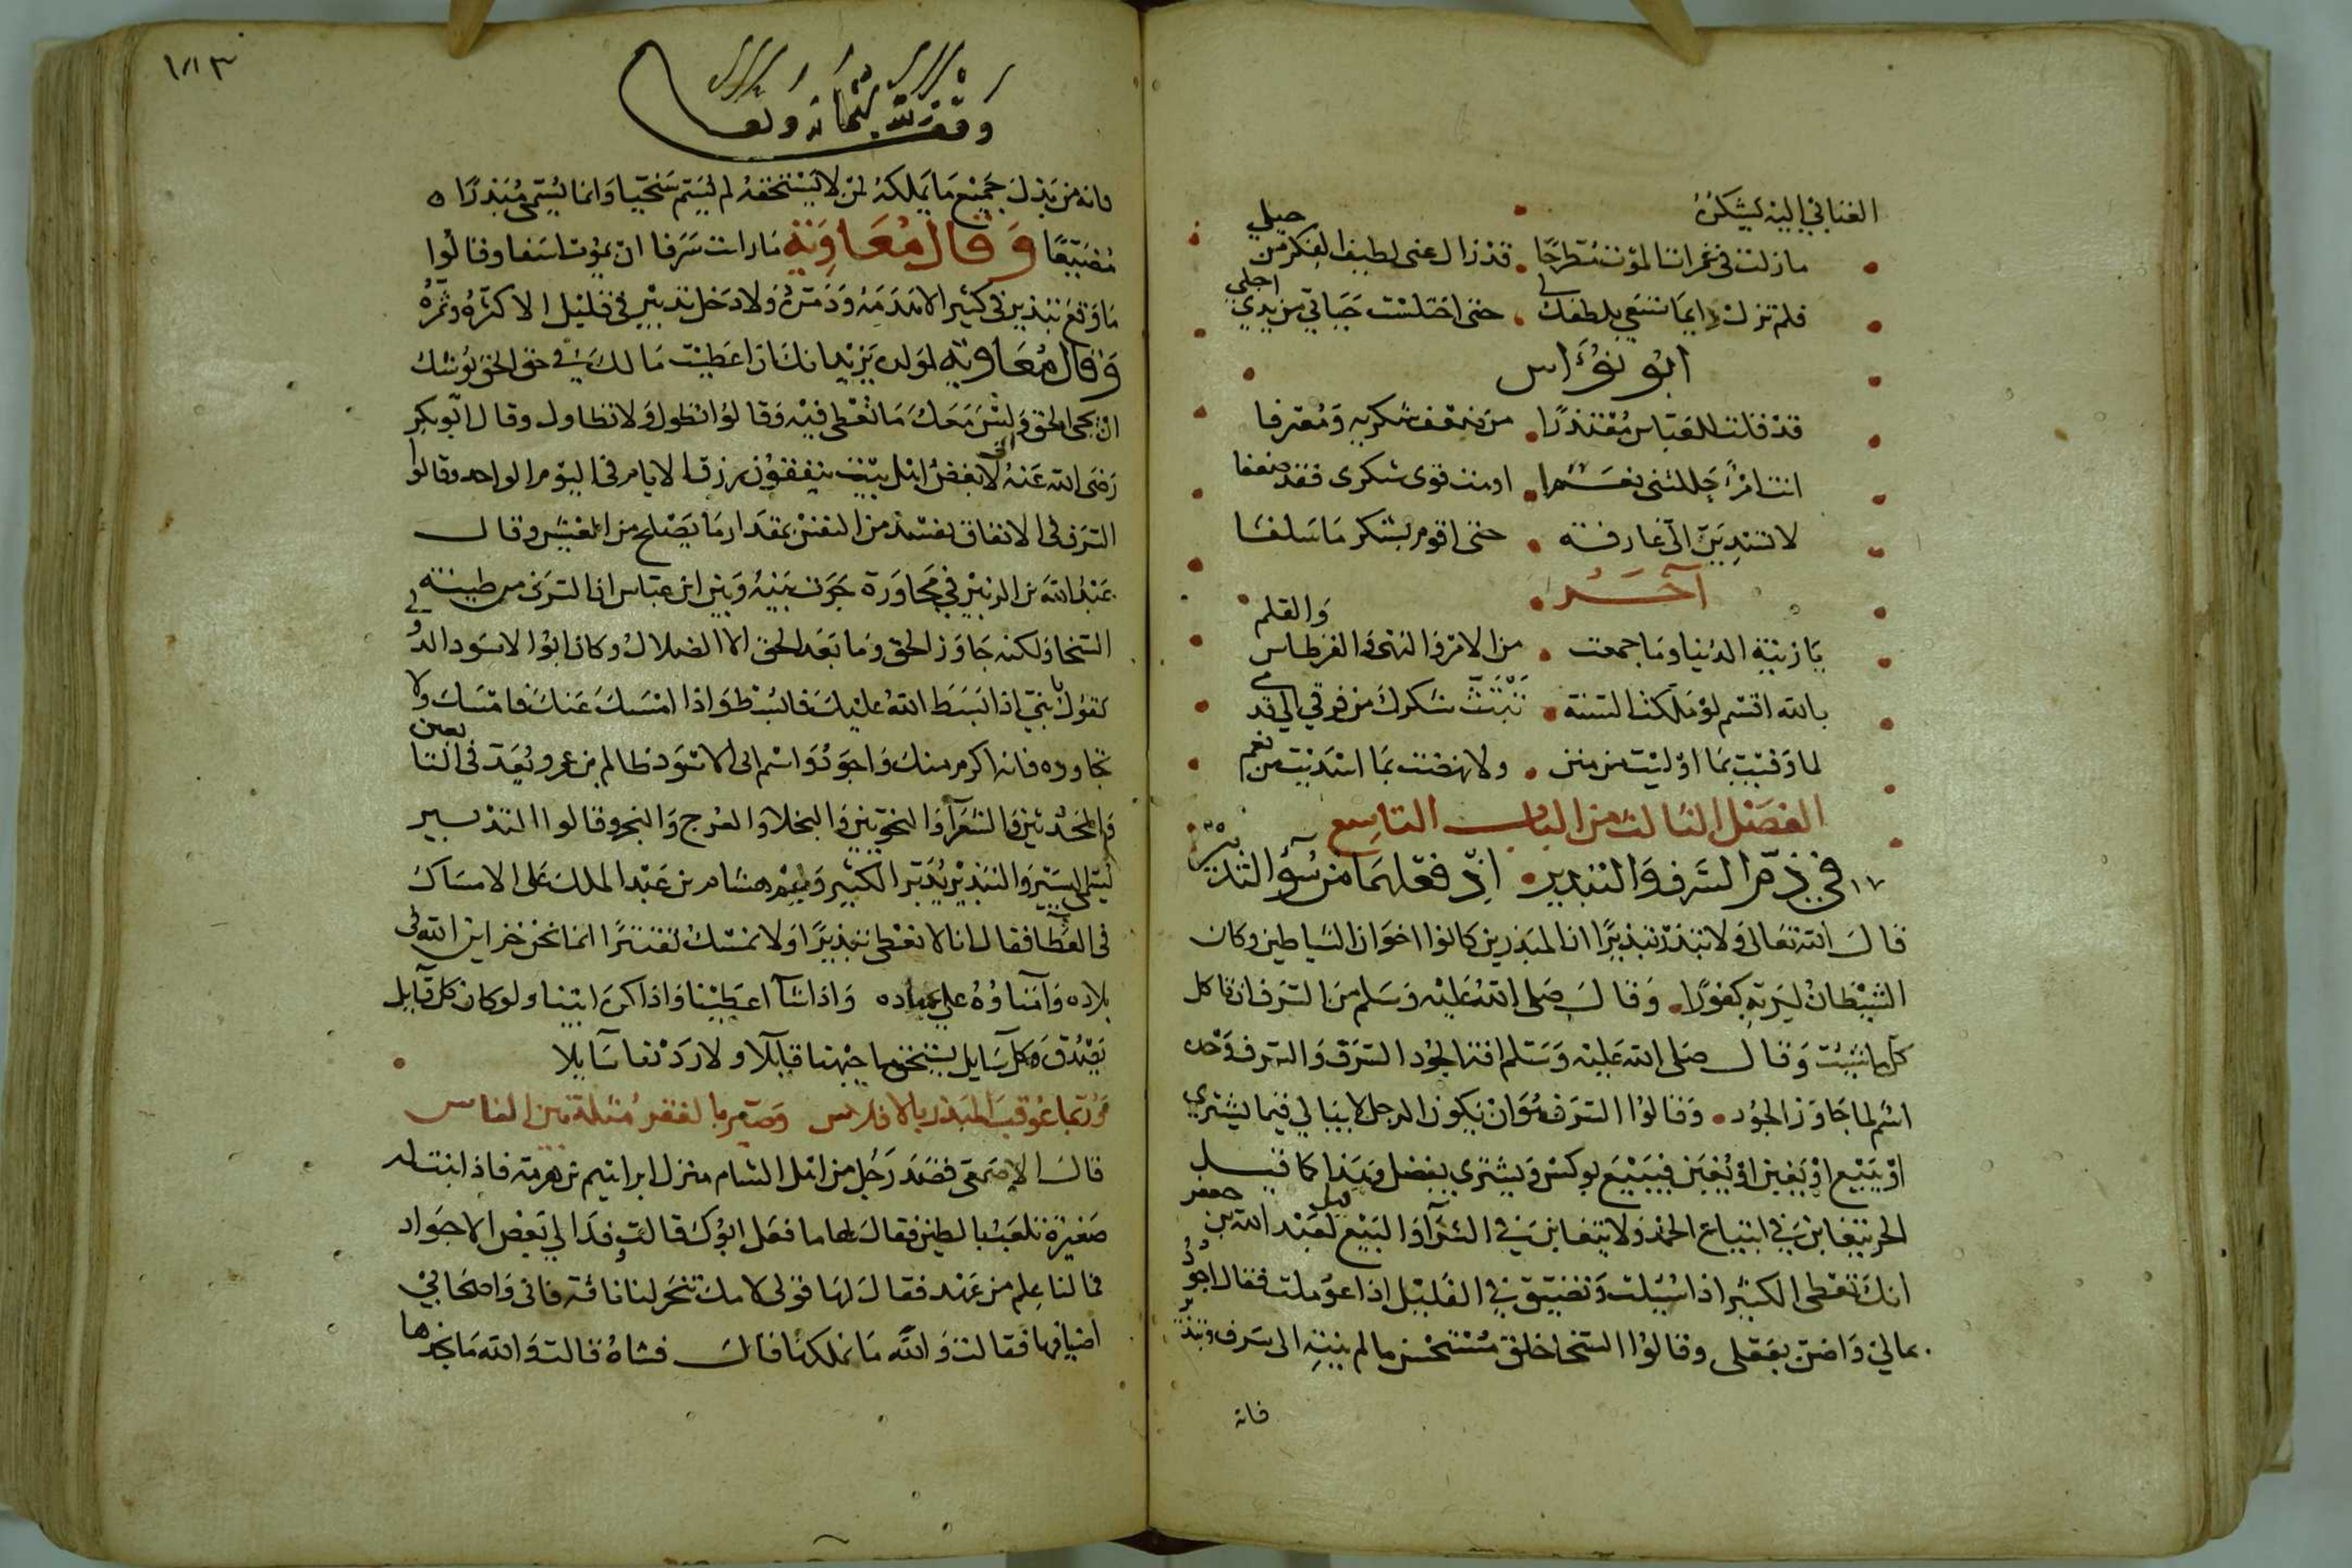 الغنا في إليه يشكره
ما زلت في غمرات الموت مطرحا . قد زال عني لطيف الفكر من حيلي
فلم تزل دايما تسعى بلطفك لي . حتى اختلست حياتي من يدي اجلي
ابو نؤاس
قد قلت للعباس معتذرا . من ضعف شكريه ومعترفا
انت امرؤ جللتني نعما . اوهت قوى شكري فقد ضعفا
لا تسدين الي عارفة . حتى اقوم بشكر ما سلفا
آخر
يا زينة الدنيا وما جمعت . من الامر والنهي والقرطاس والقلم
بالله اقسم لو ملكت السنة . تبث شكرك من فرقي الى قدمي
لما وفيت بما اوليت من منن . ولا نهضت بما اسديت من نعم
الفصل الثالث من الباب التاسع
في ذم السرف والتبذير . اذ فعلهما من سوء التدبير
قال الله تعالى ولا تبذر تبذيرا ان المبذرين كانوا اخوان الشياطين وكان
الشيطان لربه كفورا . وقال صلى الله عليه وسلم من السرف ان تاكل
كل ما شيت وقال صلى الله عليه وسلم افة الجود السرف والسرف وحده
اسم لما جاوز الجود . وقالوا السرف هو ان يكون الرجل لا يبالي فيما يشتري
او يبيع او يغبن او يغبن فيبيع بوكس ويشتري بفضل وهذا كما قيل
الحر يتغابن في ابتياع الحمد ولا يتغابن في الشرآ والبيع قيل لعبد الله بن جعفر
انك تعطي الكثير اذا سيلت وتضيق في القليل اذا عوملت فقال اجود
بمالي واضن بعقلي وقالوا السخا خلق مستحسن ما لم ينته الى سرف وتبذير
فانه
١٨٣
وقف لله تعالى
فانه من بذل جميع ما يملكه لمن لا يستحقه لم يسم سخيا وانما يسمى مبذرا
مضيعا وقال معاوية ما رايت سرفا وقالوا
ما وقع تبذير في كثير الا هدمه ودمره ولا دخل تدبير في قليل الا كثره وثمره
وقال معاوية لولده يزيد انك اذا اعطيت مالك في حق الحق يوشك
ان يجي الحق وليس معك ما تعطي فيه وقالوا تطول ولا تطاول وقال ابو بكر
رضي الله عنه اني لابغض اهل بيت ينفقون رزق الايام في اليوم الواحد وقالوا
السرف في الانفاق يفسد من النفس بمقدار ما يصلح من العيش وقال
عبد الله بن الزبير في محاورة جرت بينه وبين ابن عباس ان السرف من طينة
السخا ولكنه جاوز الحق وما بعد الحق الا الضلال وكان ابو الاسود الدولي
يقول يا بني اذا بسط الله عليك فابسط واذا امسك عنك فامسك ولا
تجاوده فانه اكرم منك واجود واسم ابي الاسود ظالم بن عمرو يعد في التابعين
والمحدثين والشعرآ والنحويين والبخلا والعرج والبخر وقالوا التدبير
ينمي اليسير والتبذير يدبر الكثير وليم هشام بن عبد الملك على الامساك
في العطا فقال انا لا نعطي تبذيرا ولا نمسك تقتيرا انما نحن خزاين الله في
بلاده وامناؤه على عباده واذا شآ اعطينا واذا كره ابينا ولو كان كل قايل
يصدق وكل سايل يستحق ما جبهنا قايلا ولا رددنا سايلا
وربما عوقب المبذر بالافلاس وصير بالفقر مثلة بين الناس
قال الاصمعي قصد رجل من اهل الشام منزل ابراهيم بن هرمة فاذا ابنة له
صغيرة تلعب بالطين فقال لها ما فعل ابوك قالت وفد الى بعض الاجواد
فما لنا علم من عهد فقال لها قولي لامك تنحر لنا ناقة فاني واصحابي
اضيافها فقالت والله ما نملكها قال فشاة قالت والله ما نجدها